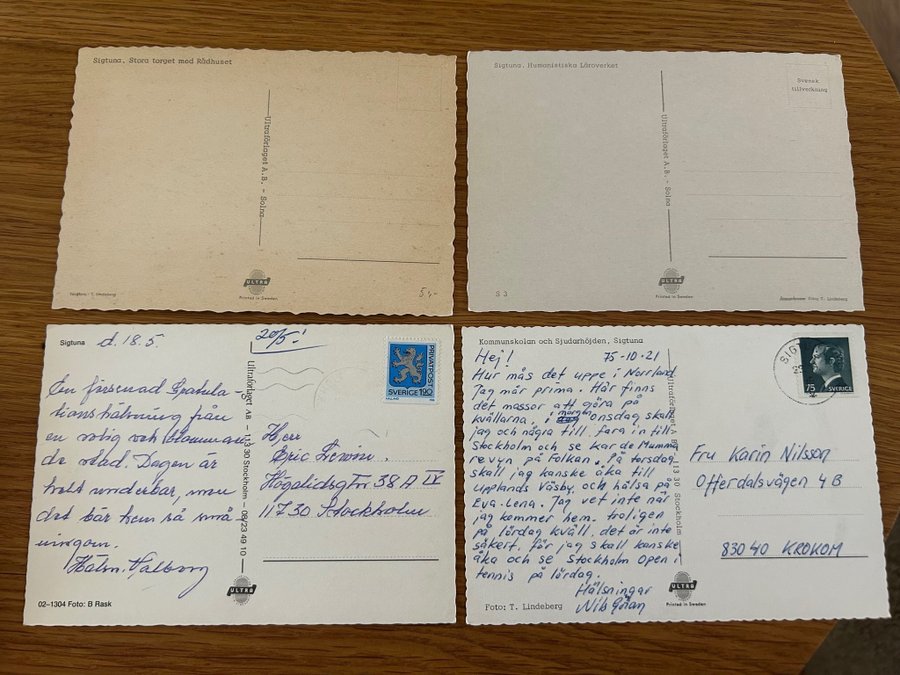 Sigtuna. Stora torget med Rådhuset
Ultraförlaget A.B. - Solna
ULTRA
Printed in Sweden
T. Lindeberg
5:-
Sigtuna. Humanistiska Läroverket
Svensk
tillverkning
Ultraförlaget A.B. - Solna
S 3
ULTRA
Printed in Sweden
Foto T. Lindeberg
Sigtuna d. 18.5.
20/5!
En försenad Gratula-
tionshälsning från
en rolig och blomman
de stad. Dagen är
helt underbar, men
det bär hem så små-
ningom.
Valborg
02-1304 Foto: B Rask
Ultraförlaget AB - 113 30 Stockholm - 08/23 49 10
ULTRA
PRIVATPOST
SVERIGE 1.90
Herr
Eric
Högalidsg 38 A IV
117 30 Stockholm
Kommunskolan och Sjudarhöjden, Sigtuna
Hej! 75-10-21
Hur mås det uppe i Norrland.
Jag mår prima. Här finns
det massor att göra på
kvällarna. i morgon onsdag skall
jag och några till fara in till
Stockholm och se Kar de Mumma
revyn på Folkan. På torsdag
skall jag kanske åka till
Upplands Väsby och hälsa på
Eva-Lena. Jag vet inte när
jag kommer hem. troligen
på lördag kväll, det är inte
säkert, för jag skall kanske
åka och se Stockholm Open i
tennis på lördag.
Hälsningar
Nils Göran
Foto: T. Lindeberg
Ultraförlaget A B 113 30 Stockholm
ULTRA
Printed in Sweden
SIG
75 SVERIGE
Fru Karin Nilsson
Offerdalsvägen 4 B
830 40 KROKOM